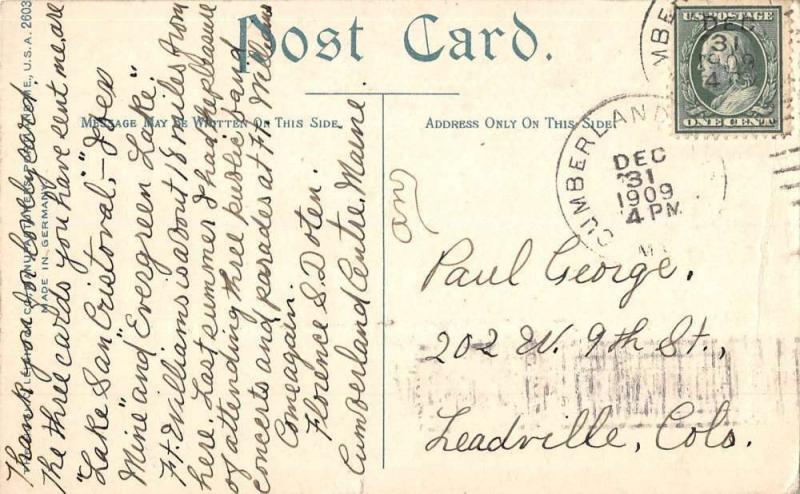 Post Card.
MESSAGE MAY BE WRITTEN ON THIS SIDE.
ADDRESS ONLY ON THIS SIDE.
U.S. POSTAGE
ONE CENT
DEC
31
1909
4
CUMBERLAND
DEC
31
1909
4 PM
Thank you for lovely card.
The three cards you have sent me, are
"Lake San Cristoval", - "Ibex
Mine" and "Evergreen Lake."
Ft. Williams is about 18 miles from
here. Last summer I had the pleasure
of attending three public band
concerts and parades at Ft. Williams
Come again.
Florence S. Doten.
Cumberland Centre, Maine.
ans
Paul George,
202 W. 9th St.,
Leadville, Colo.
MANUFACTURERS
PORTLAND, ME., U.S.A. 2603
MADE IN GERMANY